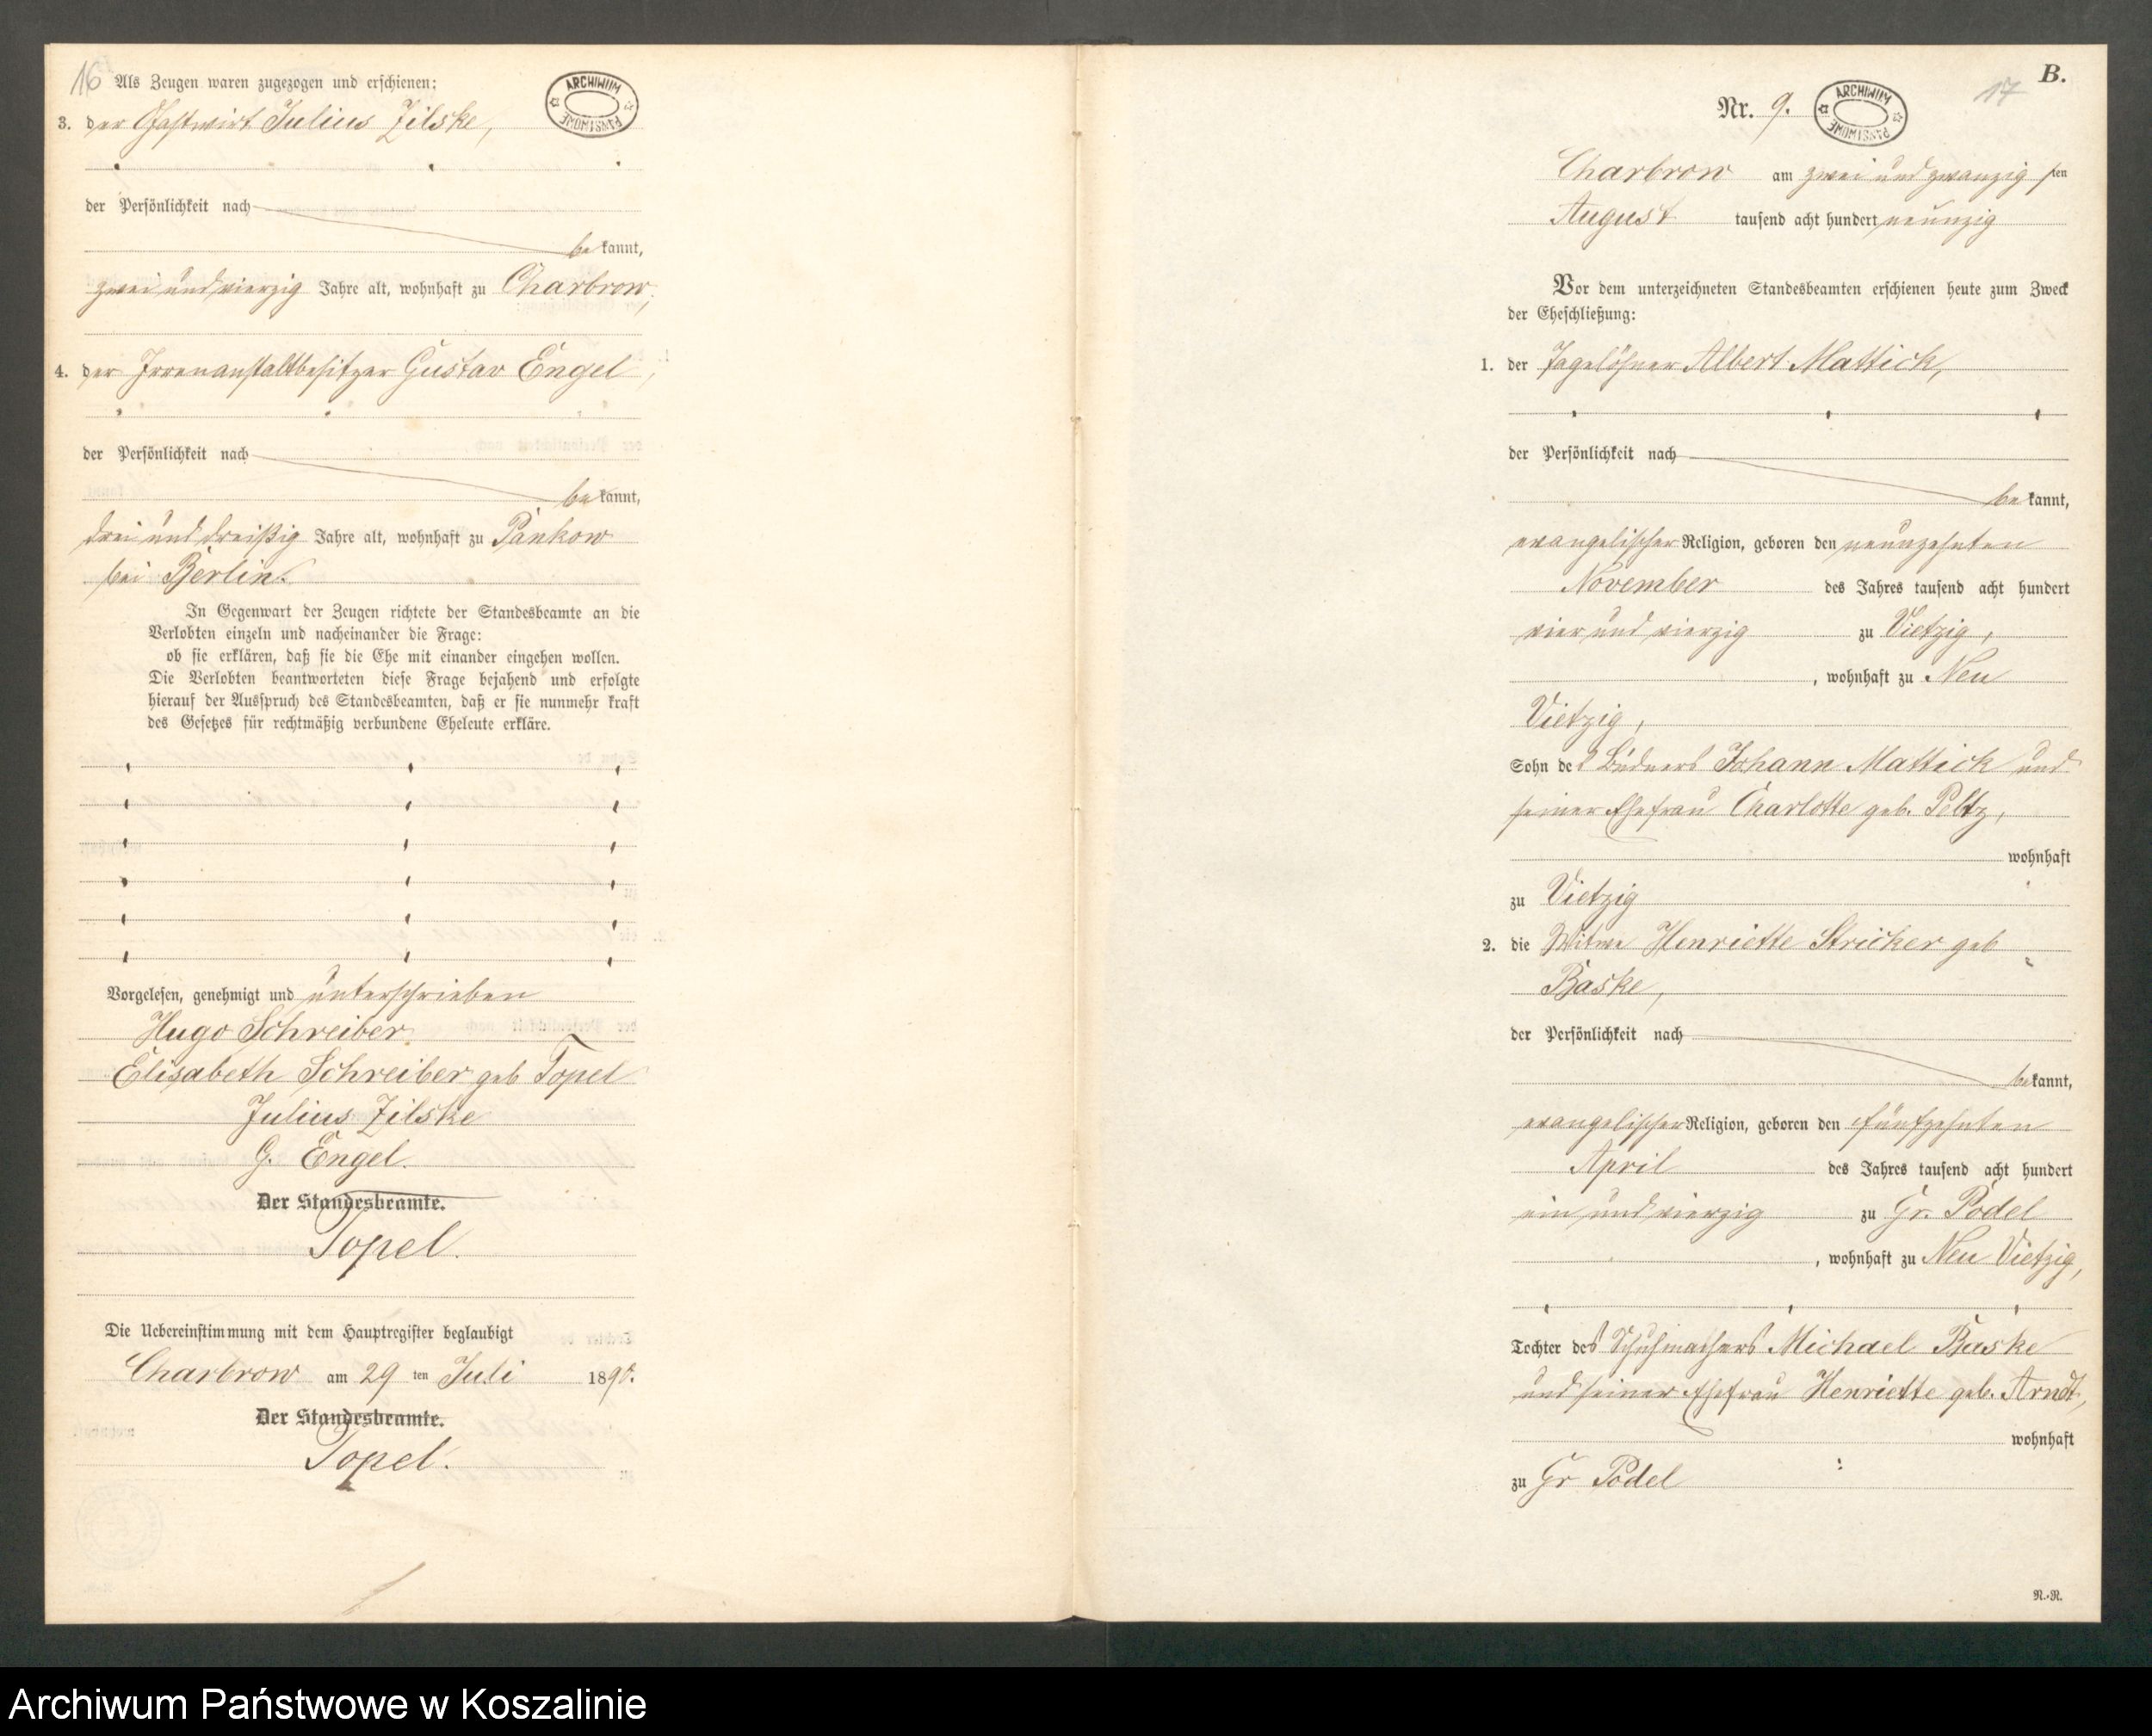 16 Als Zeugen waren zugezogen und erschienen:
ARCHIWUM PAŃSTWOWE
3. der Gastwirt Julius Zilske,
der Persönlichkeit nach
bekannt,
zwei und vierzig Jahre alt, wohnhaft zu Charbrow,
4. der Irrenanstaltbesitzer Gustav Engel,
der Persönlichkeit nach
bekannt,
drei und dreißig Jahre alt, wohnhaft zu Pankow
bei Berlin.
In Gegenwart der Zeugen richtete der Standesbeamte an die
Verlobten einzeln und nacheinander die Frage:
ob sie erklären, daß sie die Ehe mit einander eingehen wollen.
Die Verlobten beantworteten diese Frage bejahend und erfolgte
hierauf der Ausspruch des Standesbeamten, daß er sie nunmehr kraft
des Gesetzes für rechtmäßig verbundene Eheleute erkläre.
Vorgelesen, genehmigt und unterschrieben
Hugo Schreiber
Elisabeth Schreiber geb Topel
Julius Zilske
G. Engel.
Der Standesbeamte.
Topel.
Die Uebereinstimmung mit dem Hauptregister beglaubigt
Charbrow am 29 ten Juli 1890.
Der Standesbeamte.
Topel.
B.
17
Nr. 9.
ARCHIWUM PAŃSTWOWE
Charbrow am zwei und zwanzigsten
August tausend acht hundert neunzig
Vor dem unterzeichneten Standesbeamten erschienen heute zum Zweck
der Eheschließung:
1. der Tagelöhner Albert Mattick,
der Persönlichkeit nach
bekannt,
evangelischer Religion, geboren den neunzehnten
November des Jahres tausend acht hundert
vier und vierzig zu Vietzig,
, wohnhaft zu Neu
Vietzig,
Sohn des Büdners Johann Mattick und
seiner Ehefrau Charlotte geb. Peltz,
wohnhaft
zu Vietzig
2. die Witwe Henriette Stricker geb
Baske,
der Persönlichkeit nach
bekannt,
evangelischer Religion, geboren den fünfzehnten
April des Jahres tausend acht hundert
ein und vierzig zu Gr. Podel
, wohnhaft zu Neu Vietzig,
Tochter des Schuhmachers Michael Baske
und seiner Ehefrau Henriette geb. Arndt,
wohnhaft
zu Gr Podel
R.-R.
Archiwum Państwowe w Koszalinie